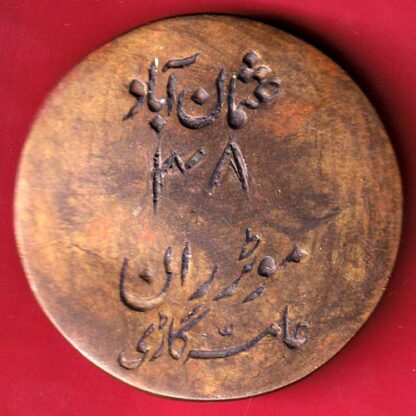 عثمان آباد
۳۸
موٹرران
عامہ گاڑی